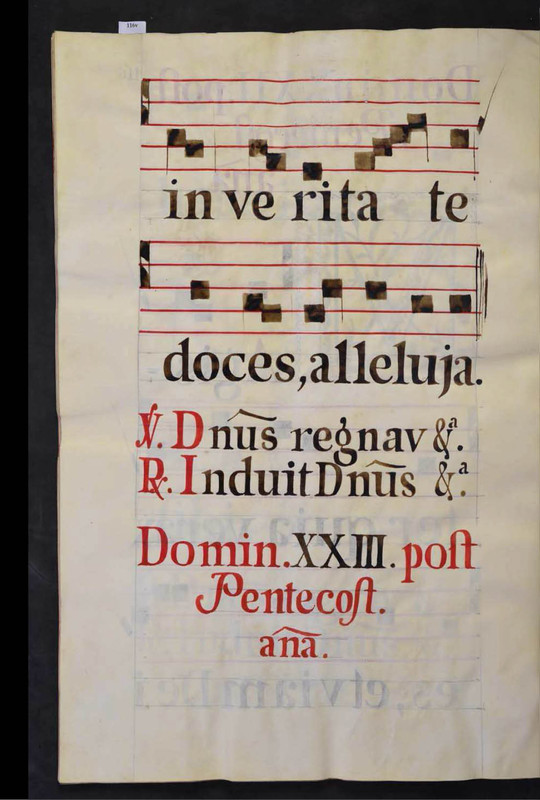 116v
in ve rita te
doces, alleluja.
℣. Dn̄us regnav &ª.
℟. Induit Dn̄us &ª.
Domin. XXIII. poſt
Pentecoſt.
an̄a.